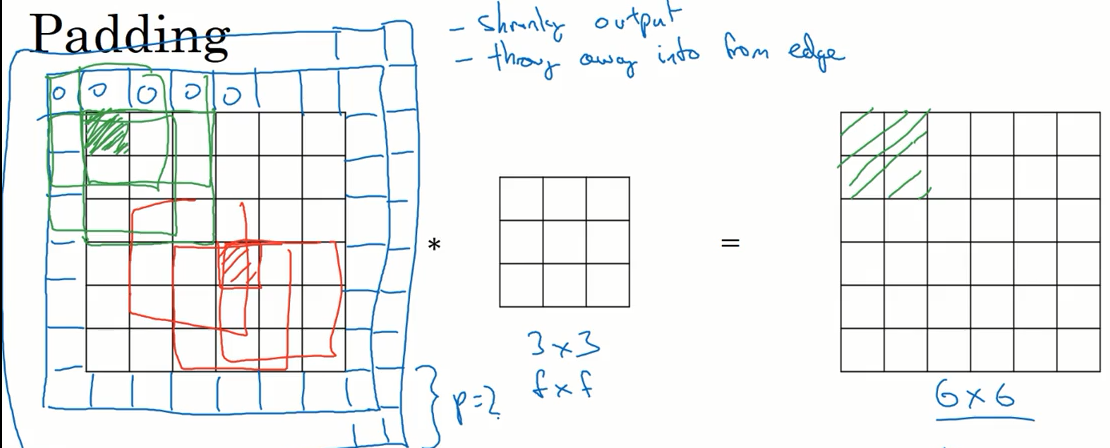 Padding
- shrinky output
- throw away info from edge
0 0 0 0 0
* =
3 × 3
f × f
p = 2
6 × 6